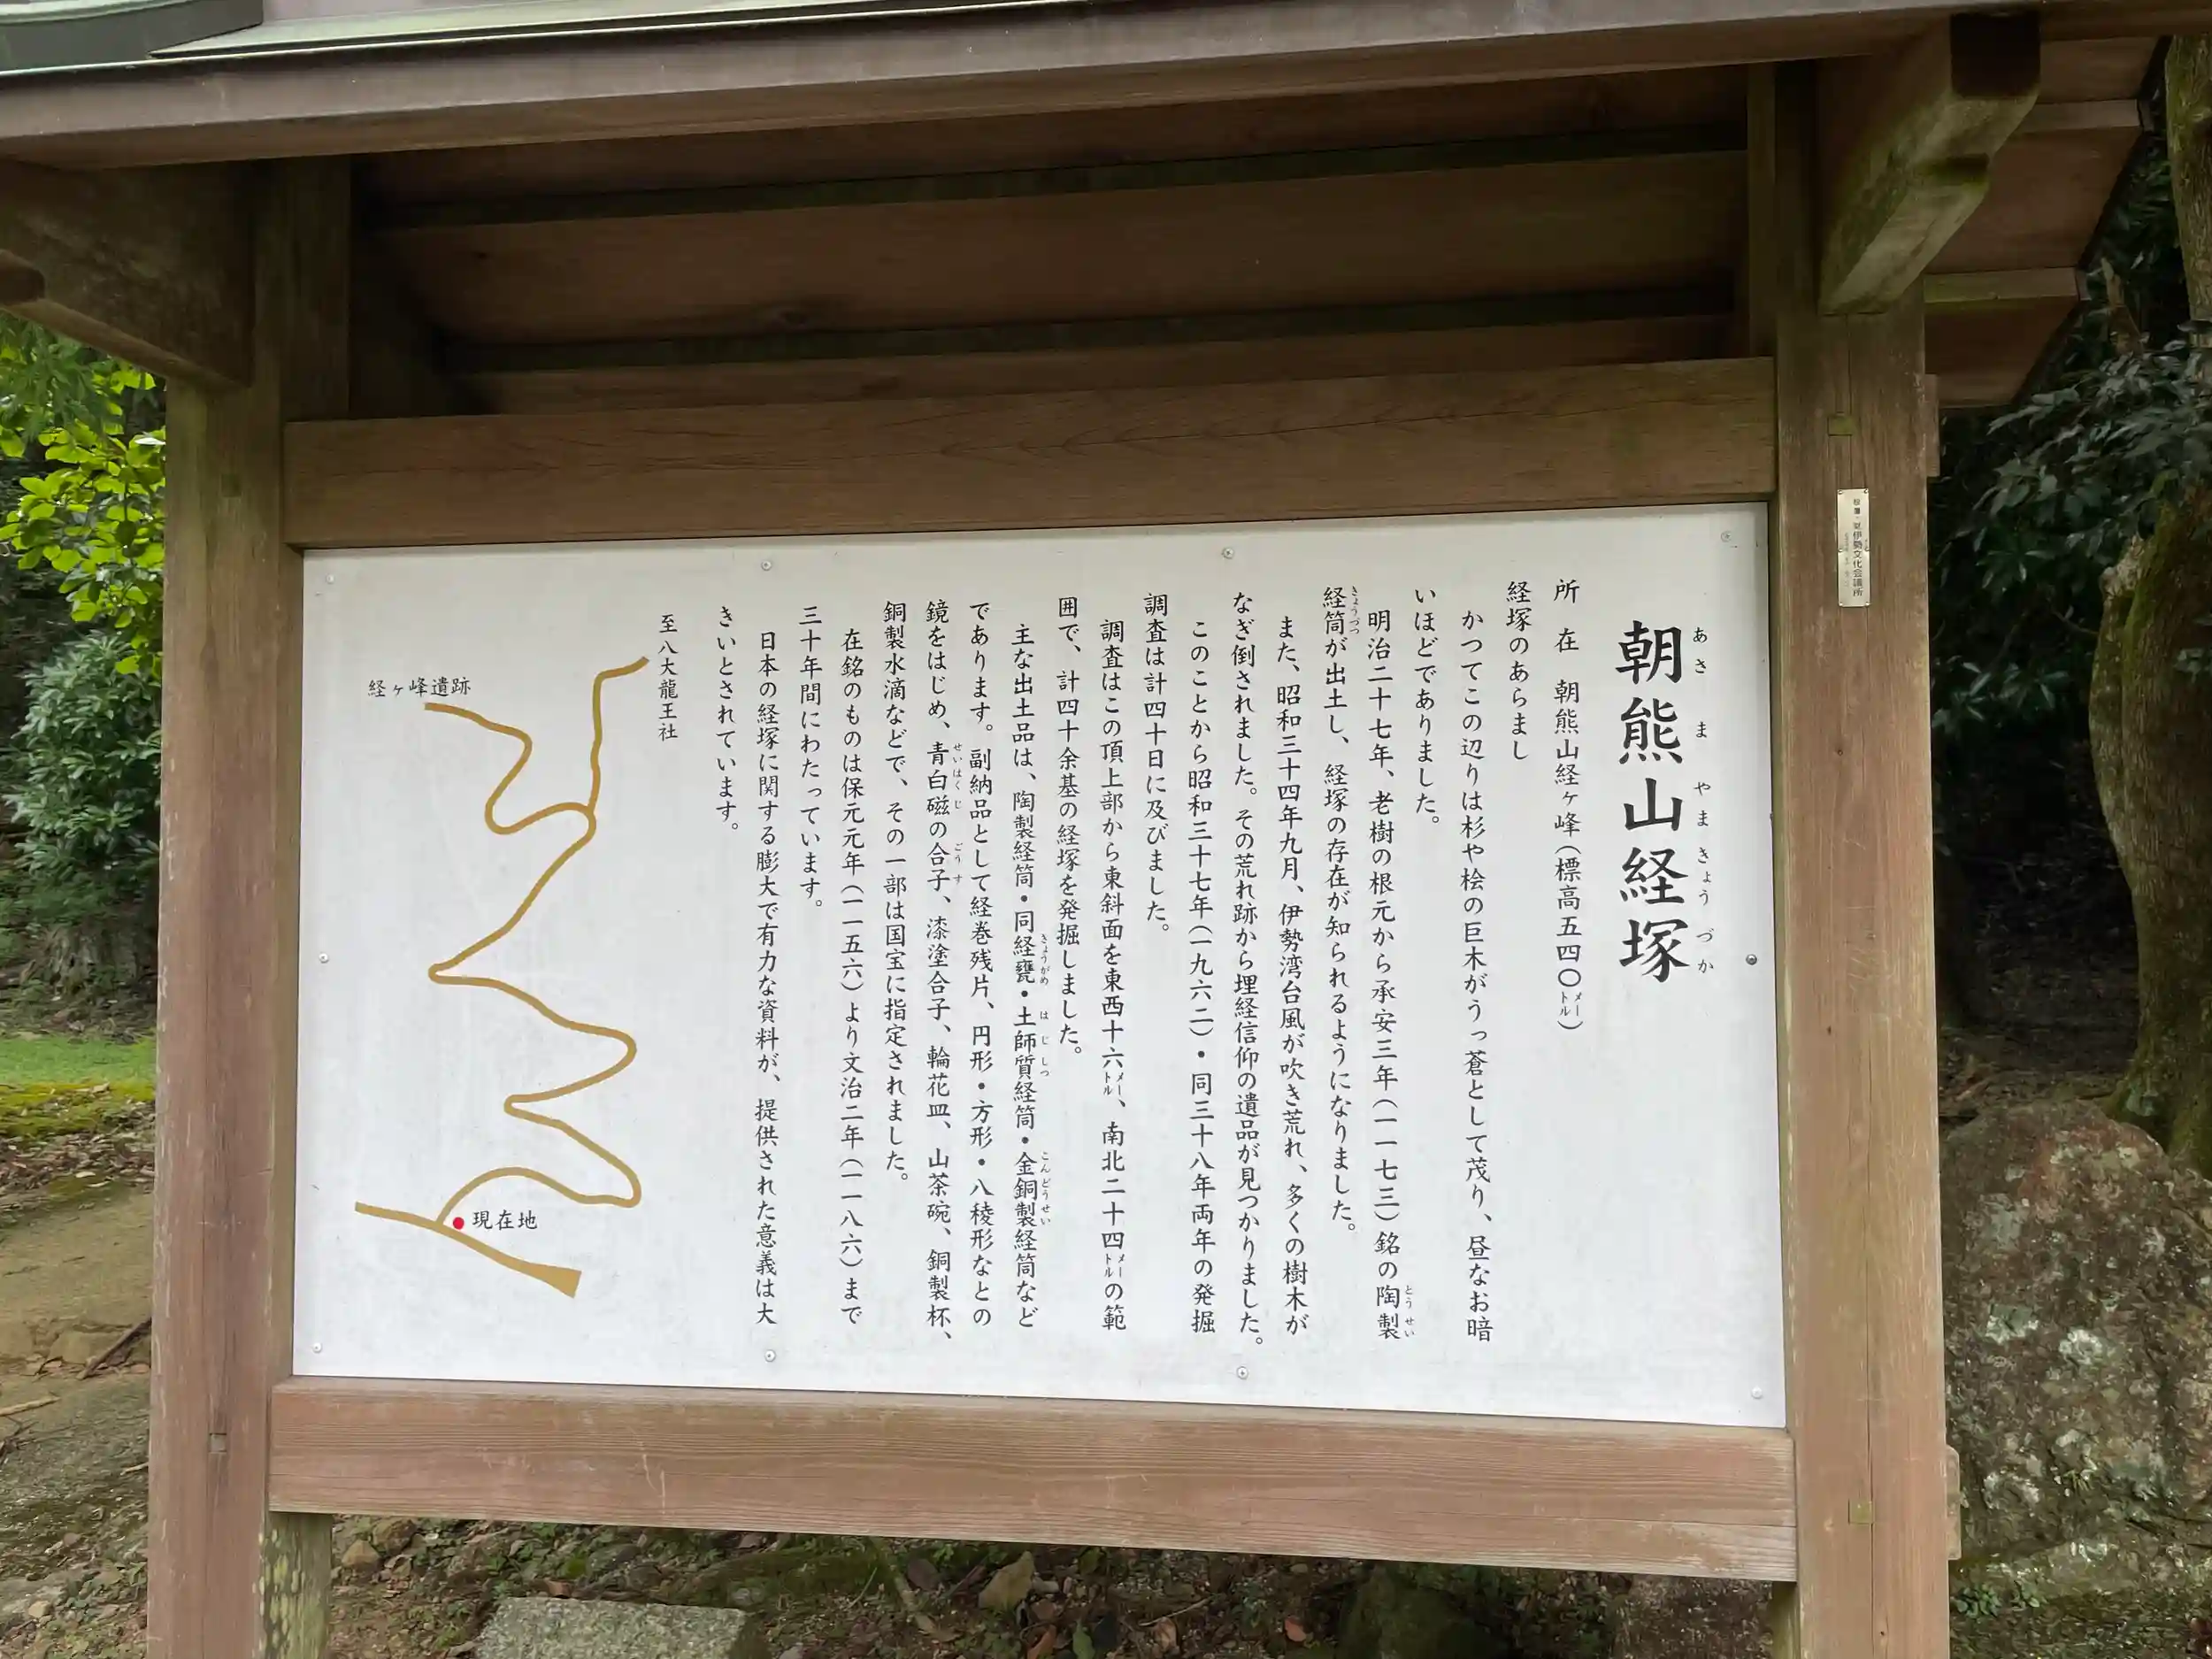 朝熊山経塚
あさ ま やま きょう づか
所 在 朝熊山経ヶ峰（標高五四〇メートル）
経塚のあらまし
かつてこの辺りは杉や桧の巨木がうっ蒼として茂り、昼なお暗
いほどでありました。
明治二十七年、老樹の根元から承安三年（一一七三）銘の陶製
とうせい
経筒が出土し、経塚の存在が知られるようになりました。
きょうづつ
また、昭和三十四年九月、伊勢湾台風が吹き荒れ、多くの樹木が
なぎ倒されました。その荒れ跡から埋経信仰の遺品が見つかりました。
このことから昭和三十七年（一九六二）・同三十八年両年の発掘
調査は計四十日に及びました。
調査はこの頂上部から東斜面を東西十六メートル、南北二十四メートルの範
囲で、計四十余基の経塚を発掘しました。
主な出土品は、陶製経筒・同経甕・土師質経筒・金銅製経筒など
きょうがめ はじしつ こんどうせい
であります。副納品として経巻残片、円形・方形・八稜形なとの
鏡をはじめ、青白磁の合子、漆塗合子、輪花皿、山茶碗、銅製杯、
せいはくじ ごうす
銅製水滴などで、その一部は国宝に指定されました。
在銘のものは保元元年（一一五六）より文治二年（一一八六）まで
三十年間にわたっています。
日本の経塚に関する膨大で有力な資料が、提供された意義は大
きいとされています。
至八大龍王社
経ヶ峰遺跡
現在地